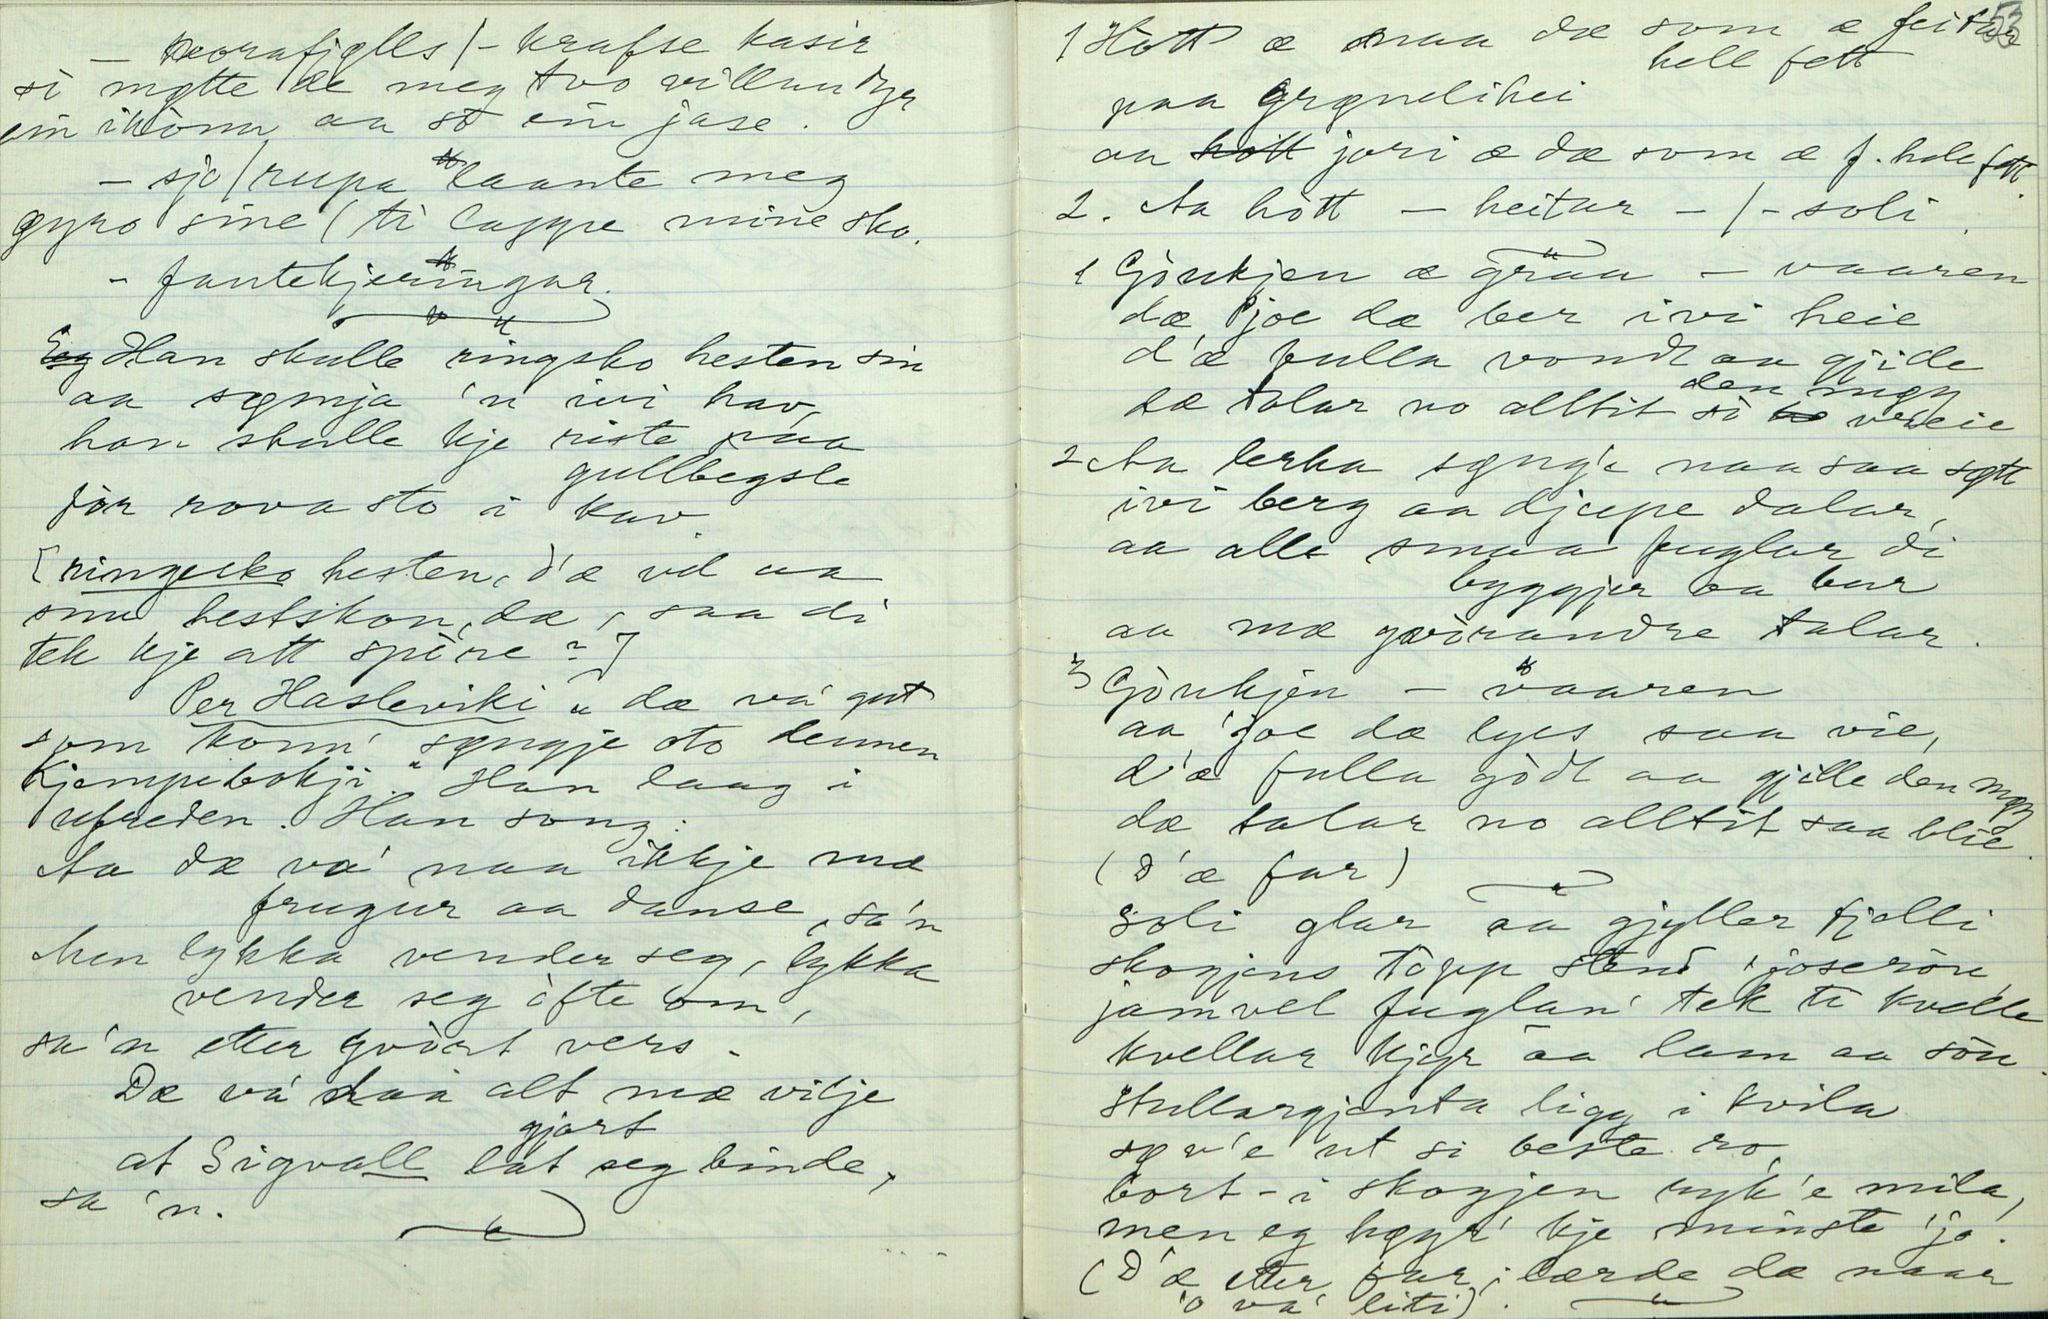 – korafjølls / – krafse kasir
si møtte de meg tvo villandyr
ein ikònn aa so ein jase.
– sjo / rupa laante meg
gyro sine / ti lappe mine sko.
– fantekjeringar.
Han skulle ringsko hesten sin
aa sømja 'n ivi hav,
han skulle kje riste paa
gullbeysle
før rova sto i kav.
[ringsko hesten, d'æ vel aa
snu hestskon, dæ, saa di
tek kje att spire?]
Per Hasleviki „dæ va' gut
som konn' søngje oto dennen
Kjempeboki." Han laag i
ufreden. Han song:
Aa dæ va' naa ikkje mæ
frugur aa danse, sa'n
Men lykka vender seg, lykka
vender seg òfte om,
sa'n etter hvòrt vers.
Dæ va' naa alt mæ vilje
gjort
at Sigvall lat seg binde,
sa'n.
53
1 Hott æ naa dæ som æ feitar
hell fett
paa Grønelihei
aa jori æ dæ som æ f. hele fett.
2. Aa hòtt – heitar – / – soli.
1 Gòukjen æ graa – vaaren
dæ ljoe dæ ber ivi heie
d'æ fulla vondt aa gjide
den møy
dæ talar no alltit so vreie
2 Aa lerka søng'e naa saa søtt
ivi berg aa djupe dalar,
aa alle smaa fuglar di
byggjer aa bur
aa mæ hvòrandre talar.
3 Gòukjen – vaaren
aa ljoe dæ lyes saa vie,
d'æ fulla gòdt aa gjille den møy
dæ talar no alltit saa blie.
(D'æ far)
Soli glar aa gjyller fjølli
skogjens tòpp stend i joserøn,
jamvel fuglan' tek ti kvelle
kvellar kjyr aa lam aa søu.
Stullargjenta ligg i kvila
søv'e ut si beste ro,
bort-i skogjen ryk'e mila,
men eg høyr' kje minste 'jo'.
(D'æ etter far; lærde dæ naar
'o va' liti).